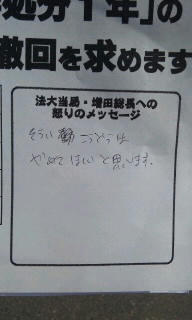 処分1年」の
撤回を求めます
法大当局・増田総長への
怒りのメッセージ
そうい ごうとうは
やめてほしいと思います。